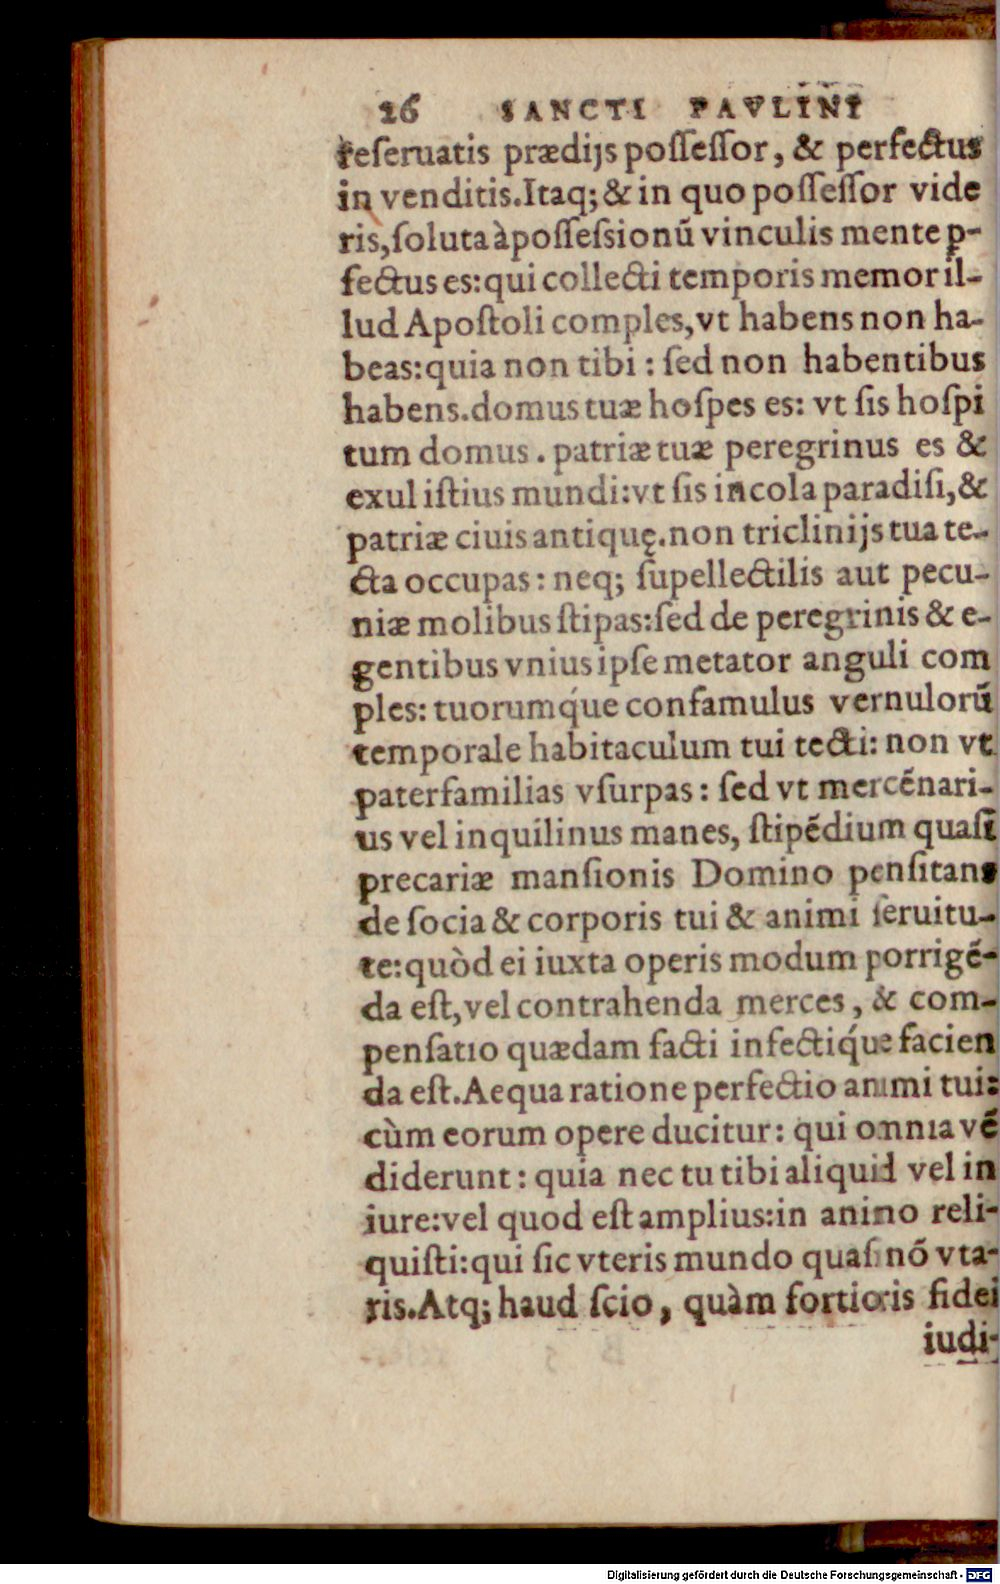 26 SANCTI PAVLINI
reseruatis prædijs possessor, & perfectus
in venditis. Itaq; & in quo possessor vide
ris, soluta à possessionũ vinculis mente p-
fectus es: qui collecti temporis memor il-
lud Apostoli comples, vt habens non ha-
beas: quia non tibi: sed non habentibus
habens. domus tuæ hospes es: vt sis hospi
tum domus. patriæ tuæ peregrinus es &
exul istius mundi: vt sis incola paradisi, &
patriæ ciuis antiquę. non triclinijs tua te-
cta occupas: neq; supellectilis aut pecu-
niæ molibus stipas: sed de peregrinis & e-
gentibus vnius ipse metator anguli com
ples: tuorumq́ue confamulus vernulorũ
temporale habitaculum tui tecti: non vt
paterfamilias vsurpas: sed vt mercẽnari-
us vel inquilinus manes, stipẽdium quasi
precariæ mansionis Domino pensitans
de socia & corporis tui & animi seruitu-
te: quòd ei iuxta operis modum porrigẽ-
da est, vel contrahenda merces, & com-
pensatio quædam facti infectiq́ue facien
da est. Aequa ratione perfectio animi tui:
cùm eorum opere ducitur: qui omnia vẽ
diderunt: quia nec tu tibi aliquid vel in
iure: vel quod est amplius: in animo reli-
quisti: qui sic vteris mundo quasi nõ vta-
ris. Atq; haud scio, quàm fortioris fidei
iudi-
Digitalisierung gefördert durch die Deutsche Forschungsgemeinschaft - DFG